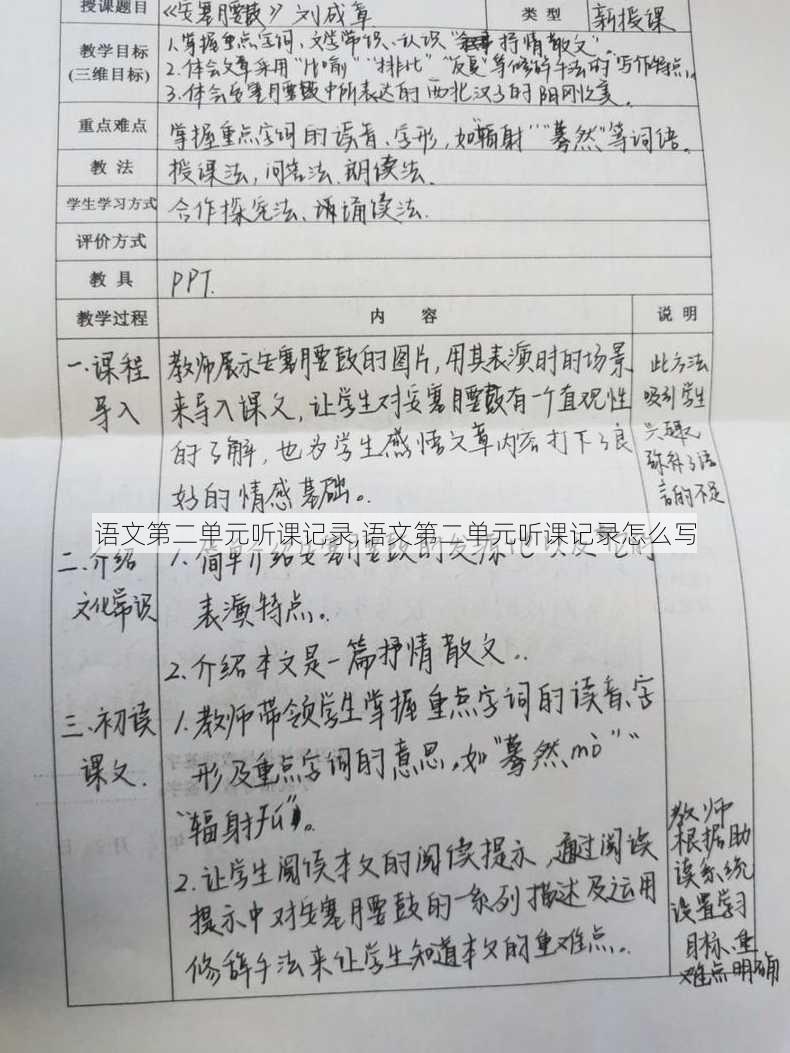 授课题目 《安塞腰鼓》刘成章 类型 新授课
教学目标 1.掌握重点字词、文学常识、认识"抒情散文"。
(三维目标) 2.体会文章采用"比喻""排比""反复"等修辞手法的写作特点。
3.体会安塞腰鼓中所表达的西北汉子的阳刚之美。
重点难点 掌握重点字词的读音、字形,如"辐射""蓦然"等词语。
教法 授课法,问答法、朗读法、
学生学习方式 合作探究法、诵读法.
评价方式
教具 PPT.
教学过程 内容 说明
一.课程 教师展示安塞腰鼓的图片,用其表演时的场景 此方法
导入 来导入课文,让学生对安塞腰鼓有一个直观性 吸引学生
的了解,也为学生感悟文章内容打下了良 兴趣
好的情感基础。 弥补了语
言的不足
语文第二单元听课记录,语文第二单元听课记录怎么写
二.介绍 1.简单介绍安塞腰鼓的发源地以及它的
文化常识 表演特点。
2.介绍本文是一篇抒情散文。
三.初读 1.教师带领学生掌握重点字词的读音、字
课文. 形及重点字词的意思,如"蓦然mò"
"辐射fú"。
2.让学生阅读本文的阅读提示,通过阅读
提示中对安塞腰鼓的一系列描述及运用
修辞手法来让学生知道本文的重难点。
教师
根据助
读系统
设置学习
目标、重
难点明确